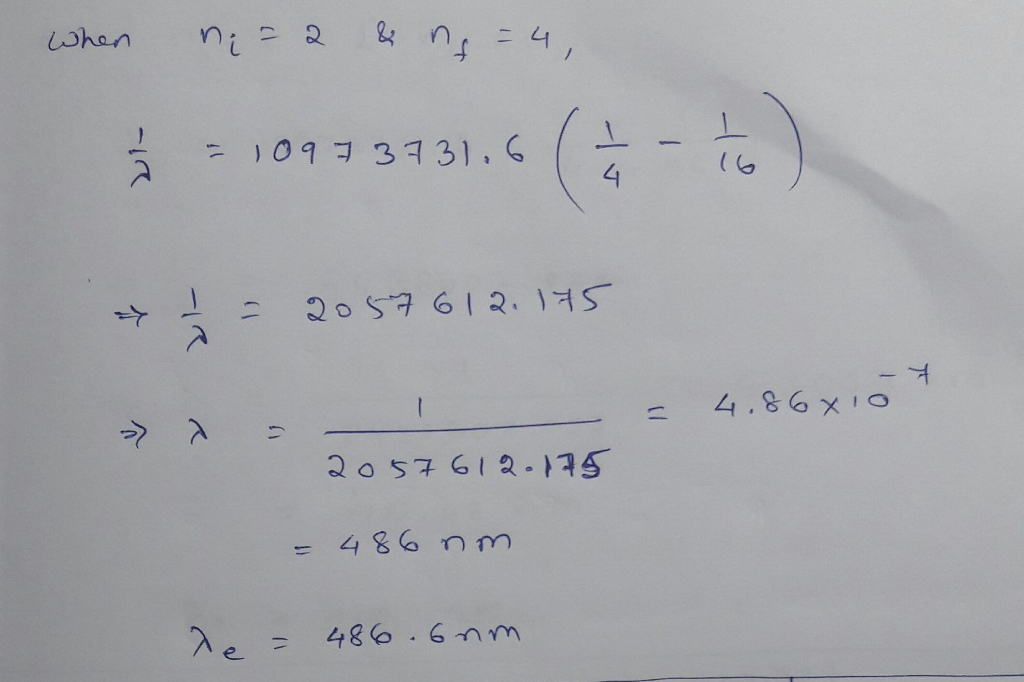 when n_i = 2 & n_f = 4,
1/λ = 10973731.6 (1/4 - 1/16)
⇒ 1/λ = 2057612.175
⇒ λ = 1/2057612.175 = 4.86 × 10^-7
= 486 nm
λ_e = 486.6 nm